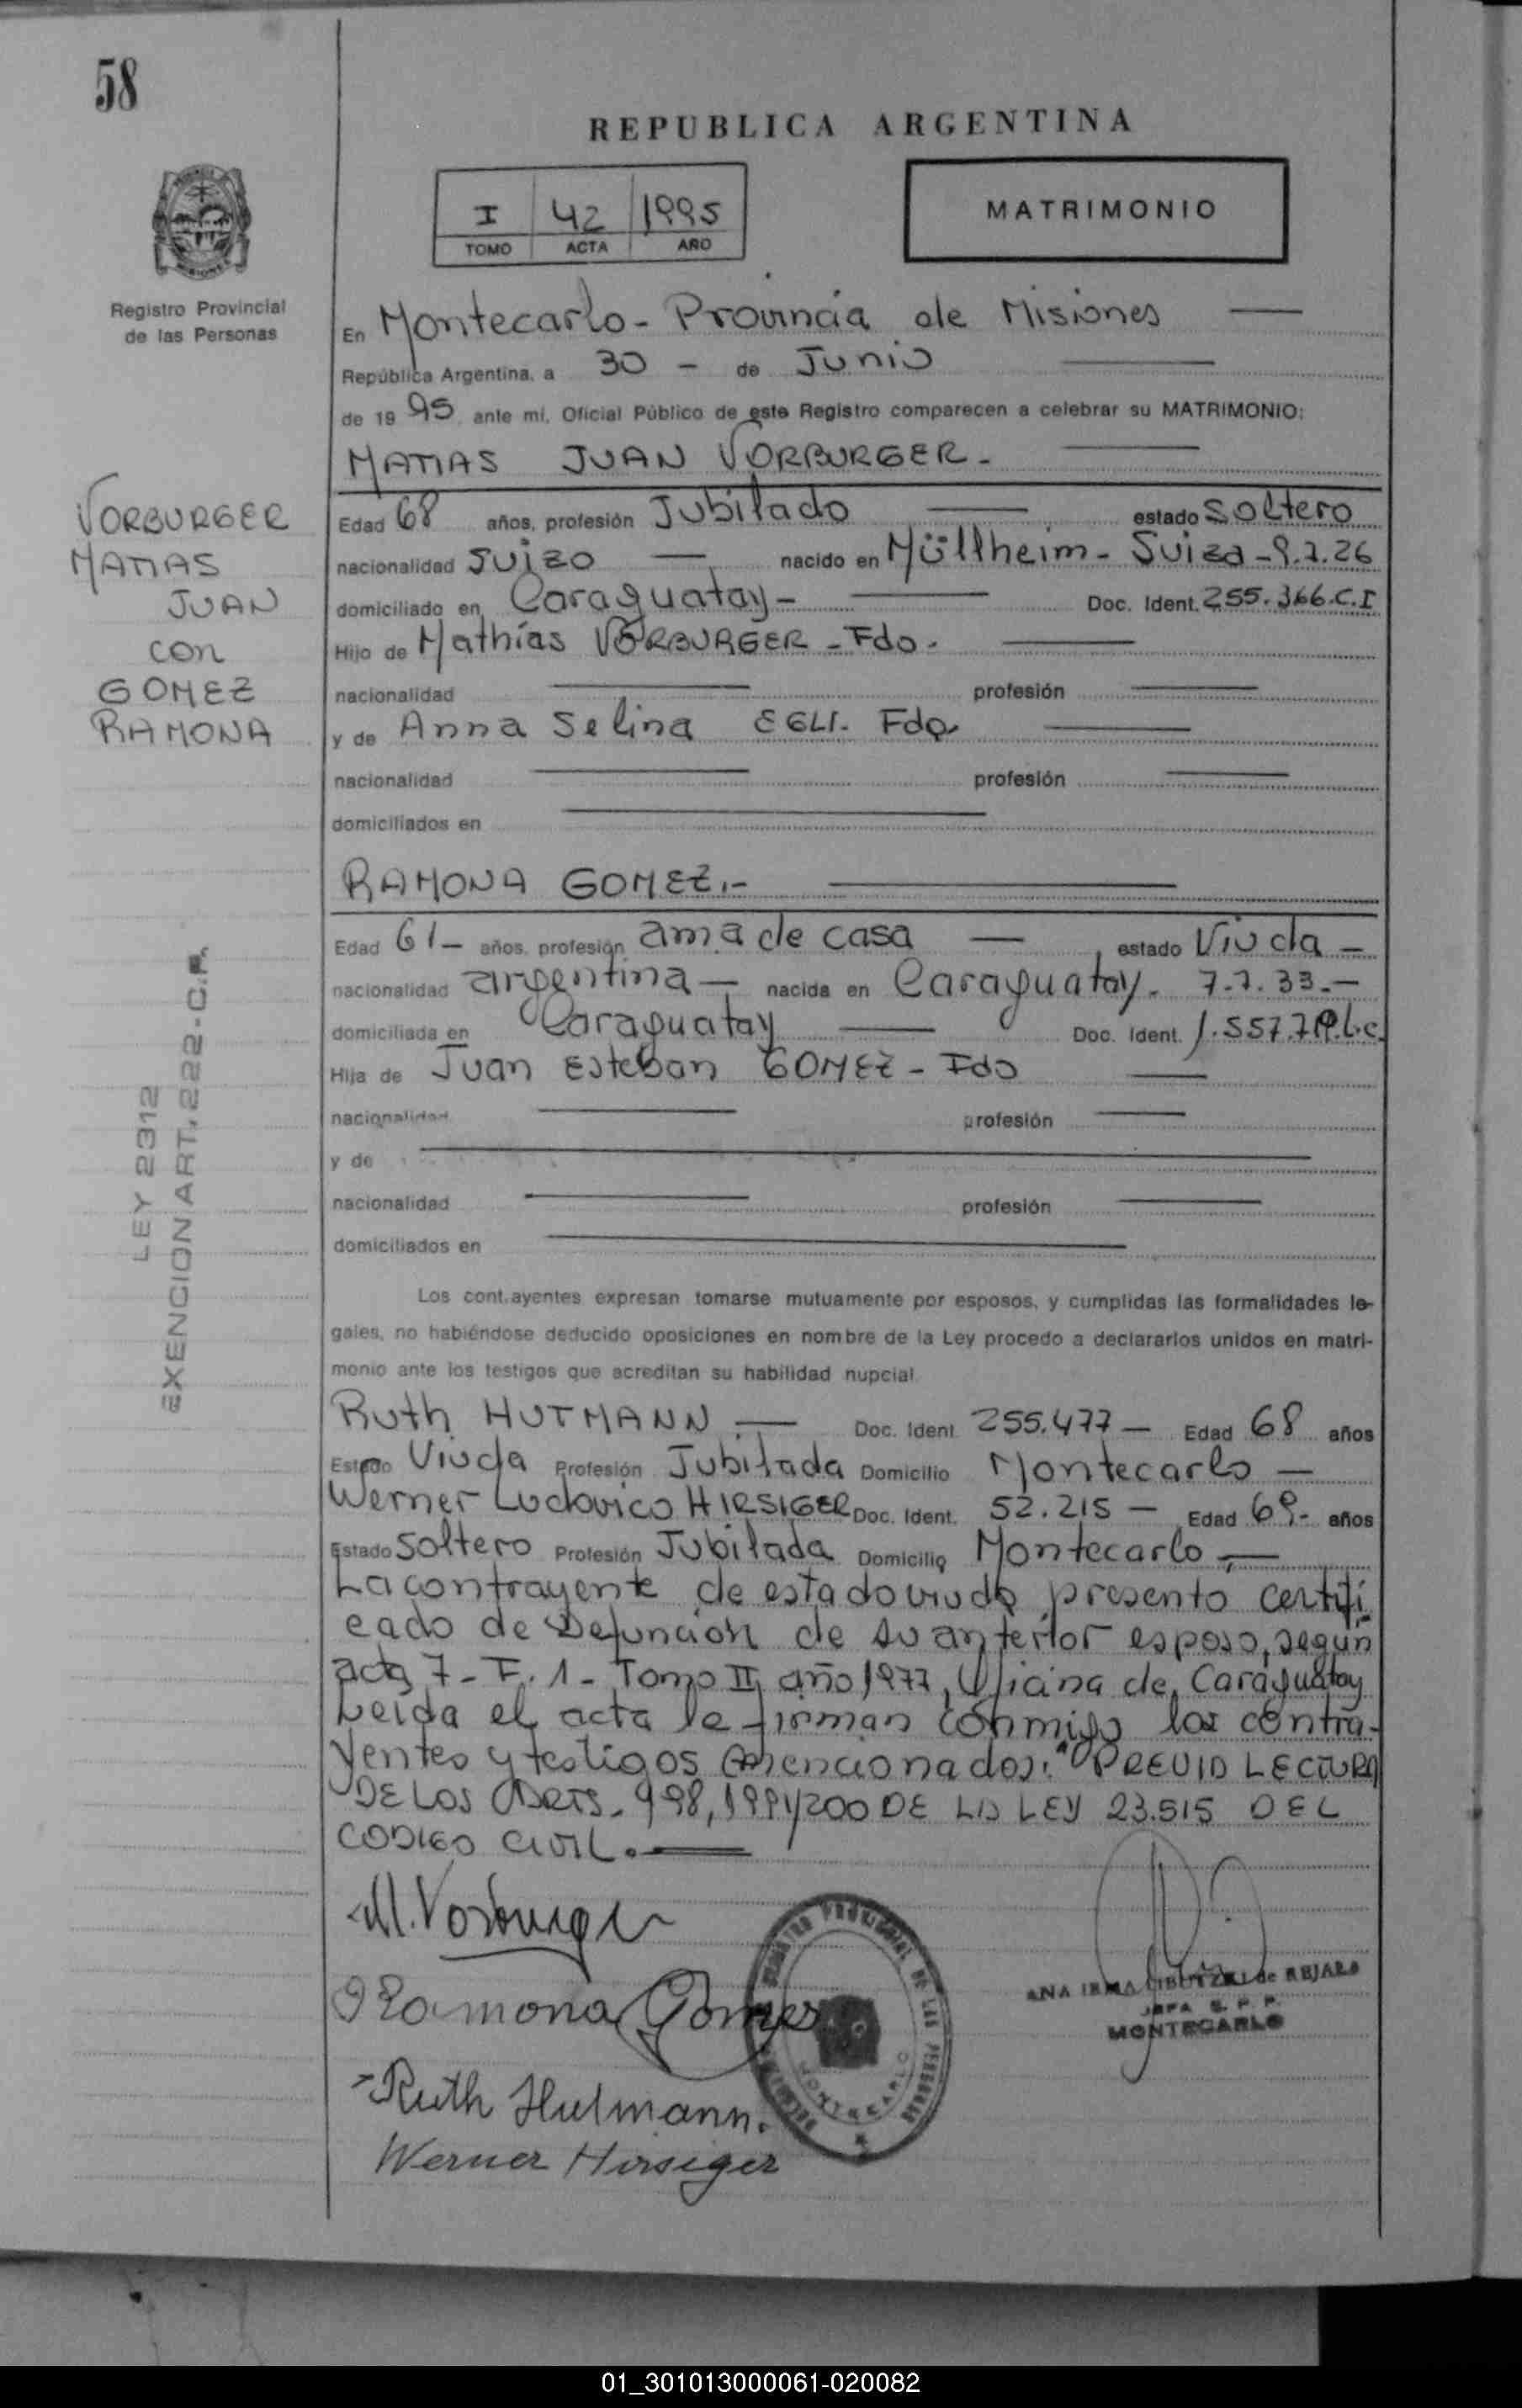 58
REPUBLICA ARGENTINA
I 42 1995
TOMO ACTA AÑO
MATRIMONIO
Registro Provincial
de las Personas
En Montecarlo - Provincia de Misiones
República Argentina, a 30 - de Junio
de 19 95 ante mi, Oficial Público de este Registro comparecen a celebrar su MATRIMONIO:
MATIAS JUAN VORBURGER -
VORBURGER
MATIAS
JUAN
con
GOMEZ
RAMONA
Edad 68 años, profesión Jubilado estado soltero
nacionalidad suizo nacido en Müllheim - Suiza - 9.7.26
domiciliado en Caraguatay - Doc. Ident. 255.366.C.I
Hijo de Mathías VORBURGER - Fdo.
nacionalidad profesión
y de Anna Selina EGLI - Fda
nacionalidad profesión
domiciliados en
RAMONA GOMEZ.-
Edad 61 - años, profesión ama de casa estado Viuda -
nacionalidad argentina - nacida en Caraguatay - 7.7.33.-
domiciliada en Caraguatay Doc. Ident. L.C.
Hija de Juan Esteban GOMEZ - Fdo
nacionalidad profesión
y de
nacionalidad profesión
domiciliados en
LEY 2312
EXENCION ART. 222 - C.F.
Los contrayentes expresan tomarse mutuamente por esposos, y cumplidas las formalidades le-
gales, no habiéndose deducido oposiciones en nombre de la Ley procedo a declararlos unidos en matri-
monio ante los testigos que acreditan su habilidad nupcial
Ruth HUTMANN - Doc. Ident 255.477 - Edad 68 años
Estado Viuda Profesión Jubilada Domicilio Montecarlo -
Werner Ludovico HIRSIGER Doc. Ident. 52.215 - Edad 69 - años
Estado soltero Profesión Jubilada Domicilio Montecarlo -
La contrayente de estado viuda presento certifi
cado de Defunción de su anterior esposo, según
acta 7 - F. 1 - Tomo II, año 1977, Oficina de Caraguatay
Leída el acta la firman conmigo los contra-
yentes y testigos mencionados: PREVIO LECTURA
DE LOS ARTS. 198, 199 y 200 DE LA LEY 23.515 DEL
CODIGO CIVIL.
M. Vorburger
Ramona Gomez
Ruth Hutmann.
Werner Hirsiger
REGISTRO PROVINCIAL DE LAS PERSONAS
MONTECARLO
ANA IRMA de REJALA
JEFA R. P. P.
MONTECARLO
01_301013000061-020082